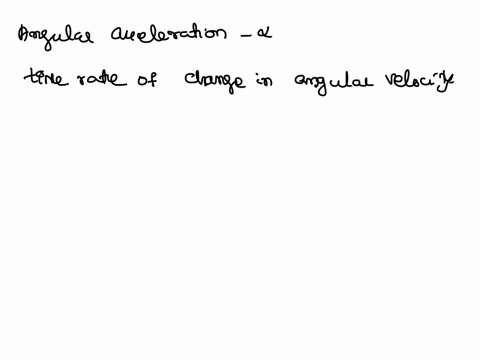 Angular acceleration - α
time rate of change in angular velocity